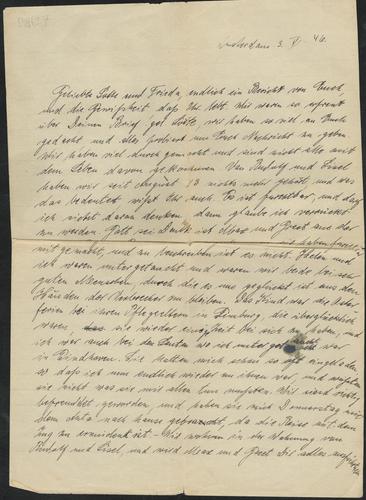 Amsterdam 3. V. 46.
Geliebte und Frieda, endlich ein Bericht von Euch,
und die Gewißheit daß Ihr lebt. Wir waren so erfreut
über Deinen Brief, wir haben so viel an Euch
gedacht und alles probiert um Euch Nachricht zu geben
Wir haben viel durchgemacht und sind nicht alle mit
dem Leben davon gekommen. Von Rudolf und Liesel
haben wir seit 43 nichts mehr gehört und was
das bedeutet wißt Ihr auch. Es ist furchtbar, und darf
ich nicht daran denken, dann glaube ich verrückt
zu werden. Gott sei Dank ist Max und Greet aus der
mit gemacht, und zu beschreiben ist es nicht. Ihelen und
ich waren untergetaucht und waren wir beide bei sehr
guten Menschen, durch die es uns geglückt ist aus den
Händen der Verbrecher zu bleiben. Das Kind war die
ferien bei ihren Pflegeeltern in Limburg, die überglücklich
waren, sie wieder bei sich zu haben, und
ich war auch bei den Leuten wo ich untergetaucht war
in Eindhoven. Sie hatten mich schon so oft eingeladen
so daß ich nun endlich wieder an ihnen war, und wußten
sie nicht was sie mir alles tun mußten. Wir sind richtig
befreundet geworden, und haben sie mich Donnerstag mit
dem Auto nach Hause gebracht, da die Reise mit dem
Zug so ist. - Wir wohnen in der Wohnung von
Rudolf und Liesel, und wird Max und Greet Dir alles